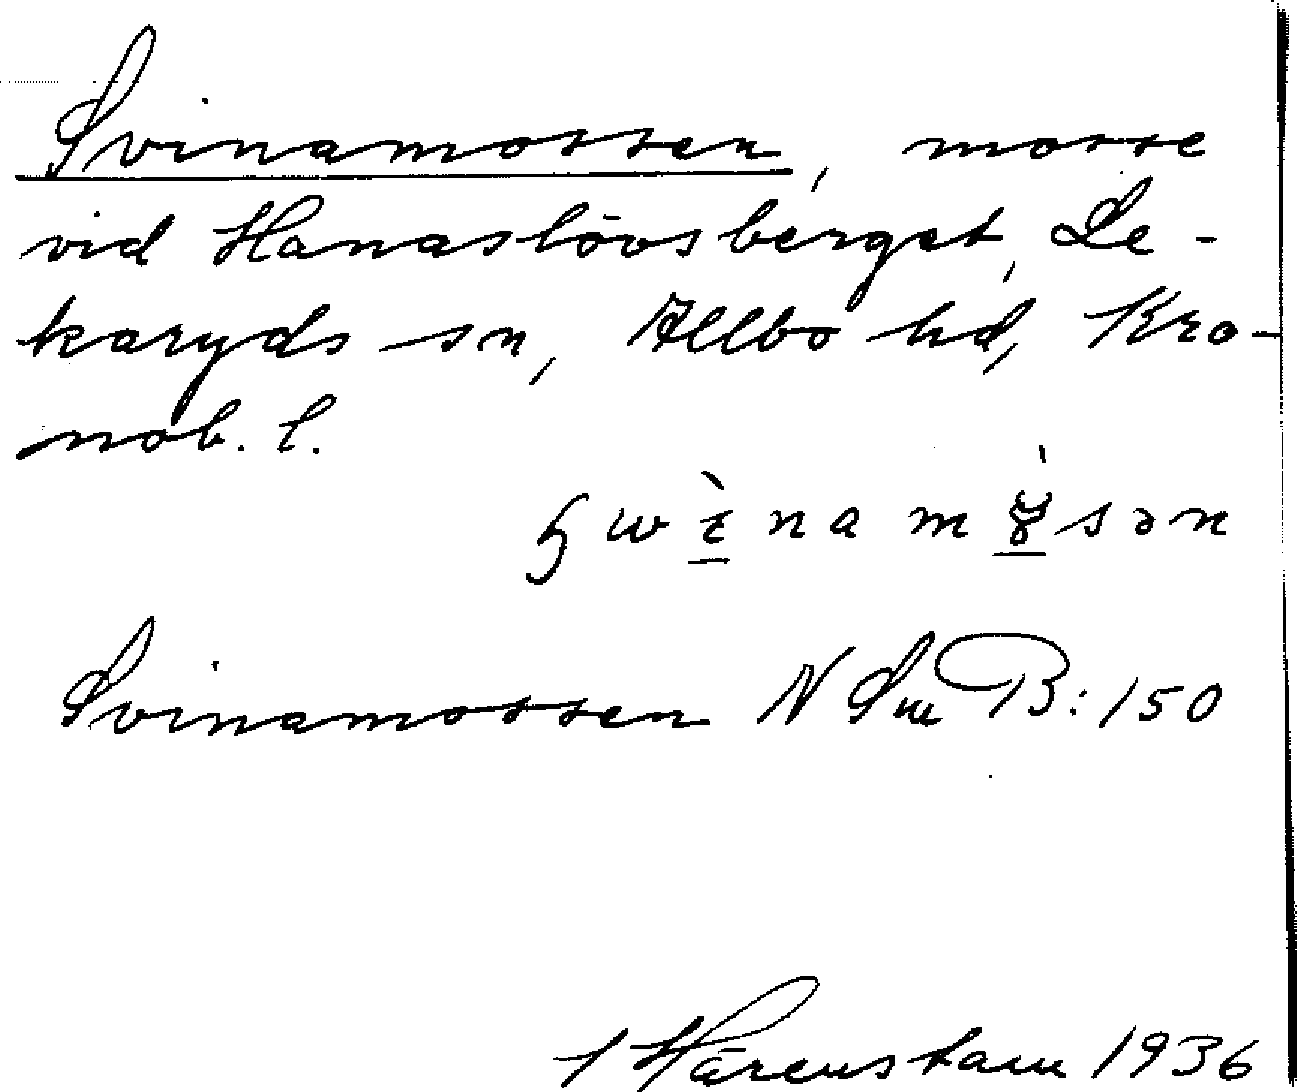 Svinamossen, mosse
vid Hanaslövsberget, Le-
karyds sn, Allbo hd, Kro-
nob. l.
Svinamossen N Sm B:150
Härenstam 1936